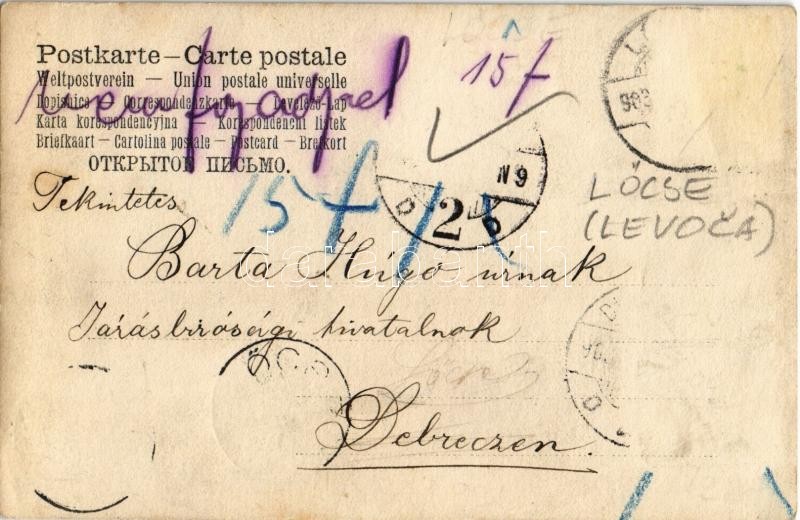 Postkarte – Carte postale
Weltpostverein — Union postale universelle
Dopisnice — Correspondenzkarte — Levelező-Lap
Karta korespondencyjna — Korespondenčni listek
Briefkaart — Cartolina postale — Postcard — Brefkort
ОТКРЫТОЕ ПИСЬМО.
15 f
15 f
2
N9
D
LŐCSE
(LEVOČA)
Tekintetes
Barta Húgó úrnak
Járásbírósági hivatalnok
Debreczen.
darabanth